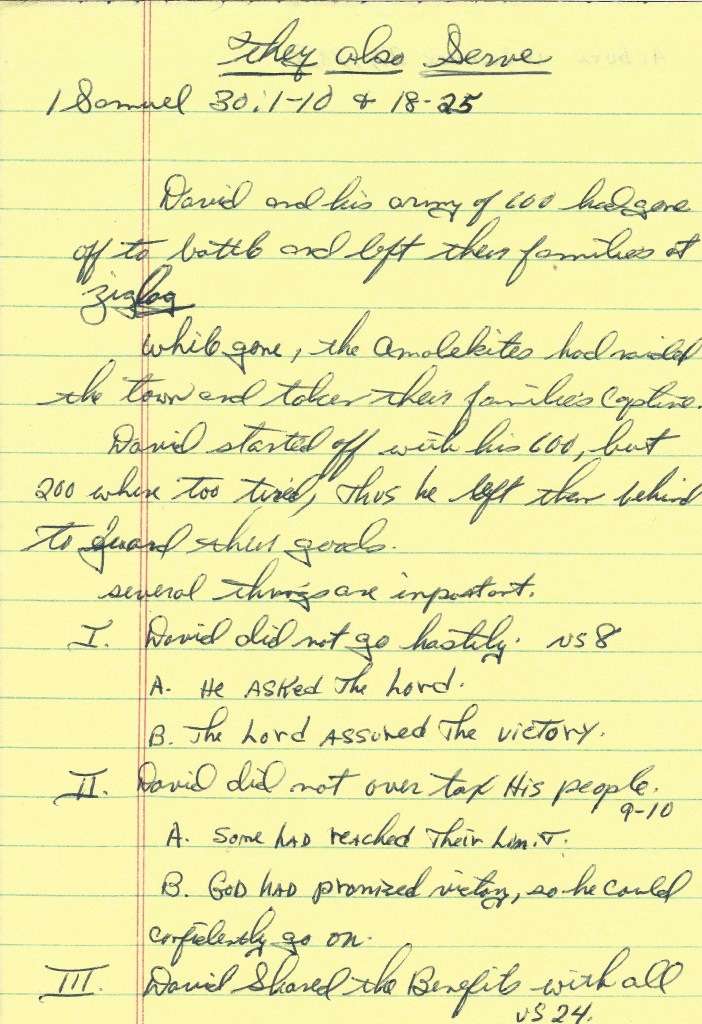 They also Serve
1 Samuel 30:1-10 & 18-25
David and his army of 600 had gone
off to battle and left their families at
ziglag
While gone, the Amalekites had raided
the town and taken their families captive.
David started off with his 600, but
200 where too tired, Thus he left them behind
to guard their goods.
several things are inportant.
I. David did not go hastily. vs 8
A. He ASKed The Lord.
B. The Lord ASSURed The VICTORY.
II. David did not over tax His people.
9-10
A. Some HAD reached Their Limit.
B. GOD HAD promized victory, so he could
confidently go on.
III. David Shared the Benefits with all
vs 24.